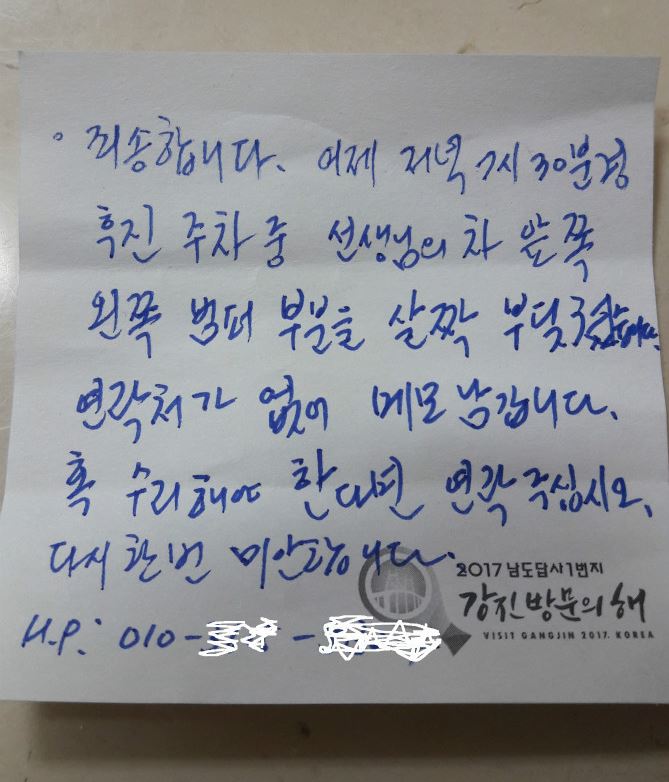 ◦ 죄송합니다. 어제 저녁 7시 30분경
후진 주차 중 선생님의 차 앞쪽
왼쪽 범퍼 부분을 살짝 부딪
연락처가 없어 메모 남깁니다.
혹 수리해야 한다면 연락 주십시오,
다시 한번 미안합니다.
2017 남도답사 1번지
강진 방문의 해
VISIT GANGJIN 2017. KOREA
H.P: 010-